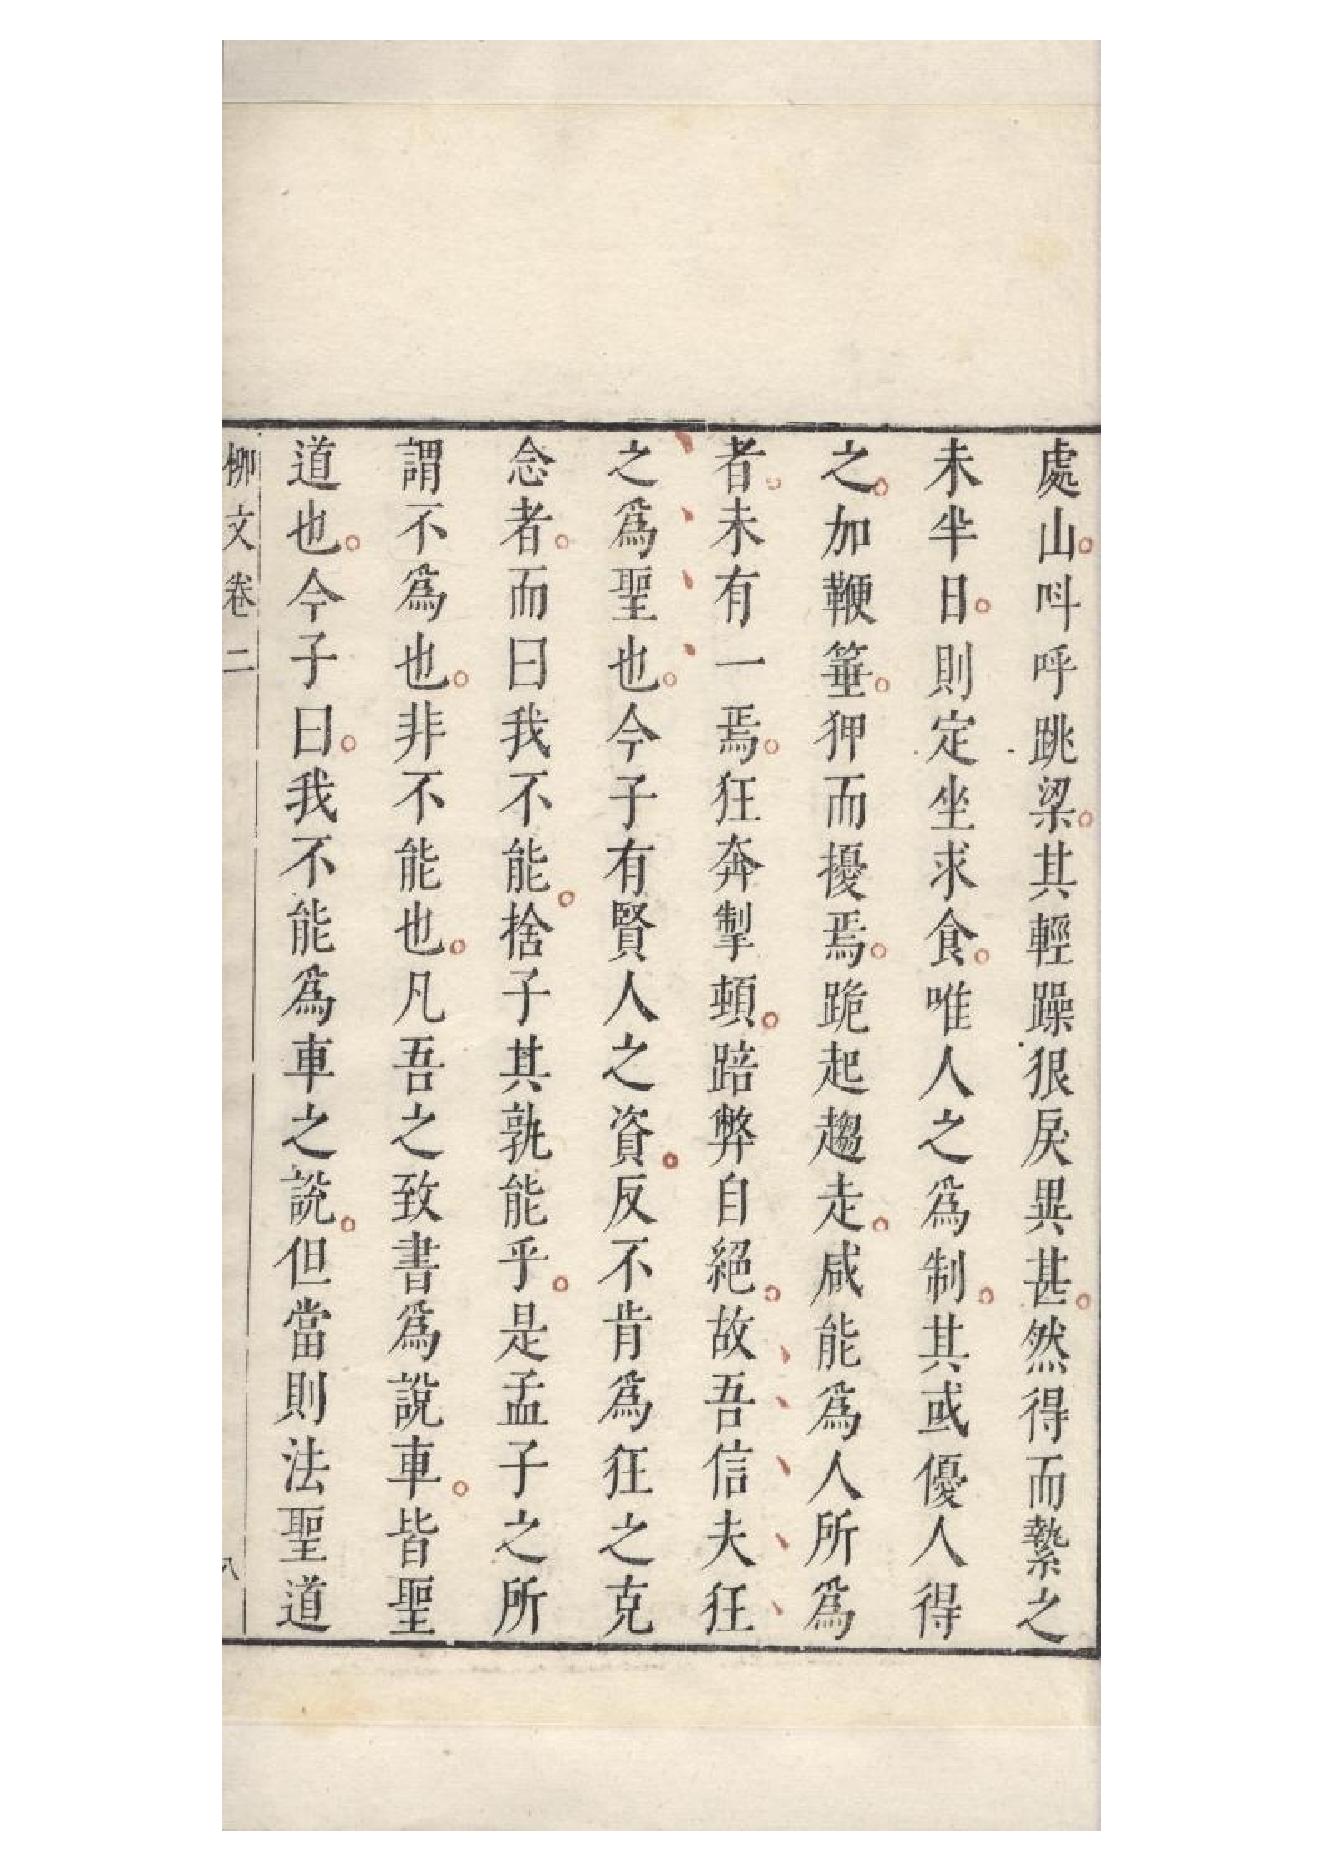 處山。呌呼跳梁。其輕躁狠戾異甚。然得而縶之
未半日。則定坐求食。唯人之爲制。其或優人得
之。加鞭箠。狎而擾焉。跪起趨走。咸能爲人所爲
者。未有一焉。狂奔掣頓。踣弊自絕。故吾信夫狂
之爲聖也。今子有賢人之資。反不肯爲狂之克
念者。而曰我不能。捨子其孰能乎。是孟子之所
謂不爲也。非不能也。凡吾之致書爲說車。皆聖
道也。今子曰。我不能爲車之說。但當則法聖道
柳文卷二
八